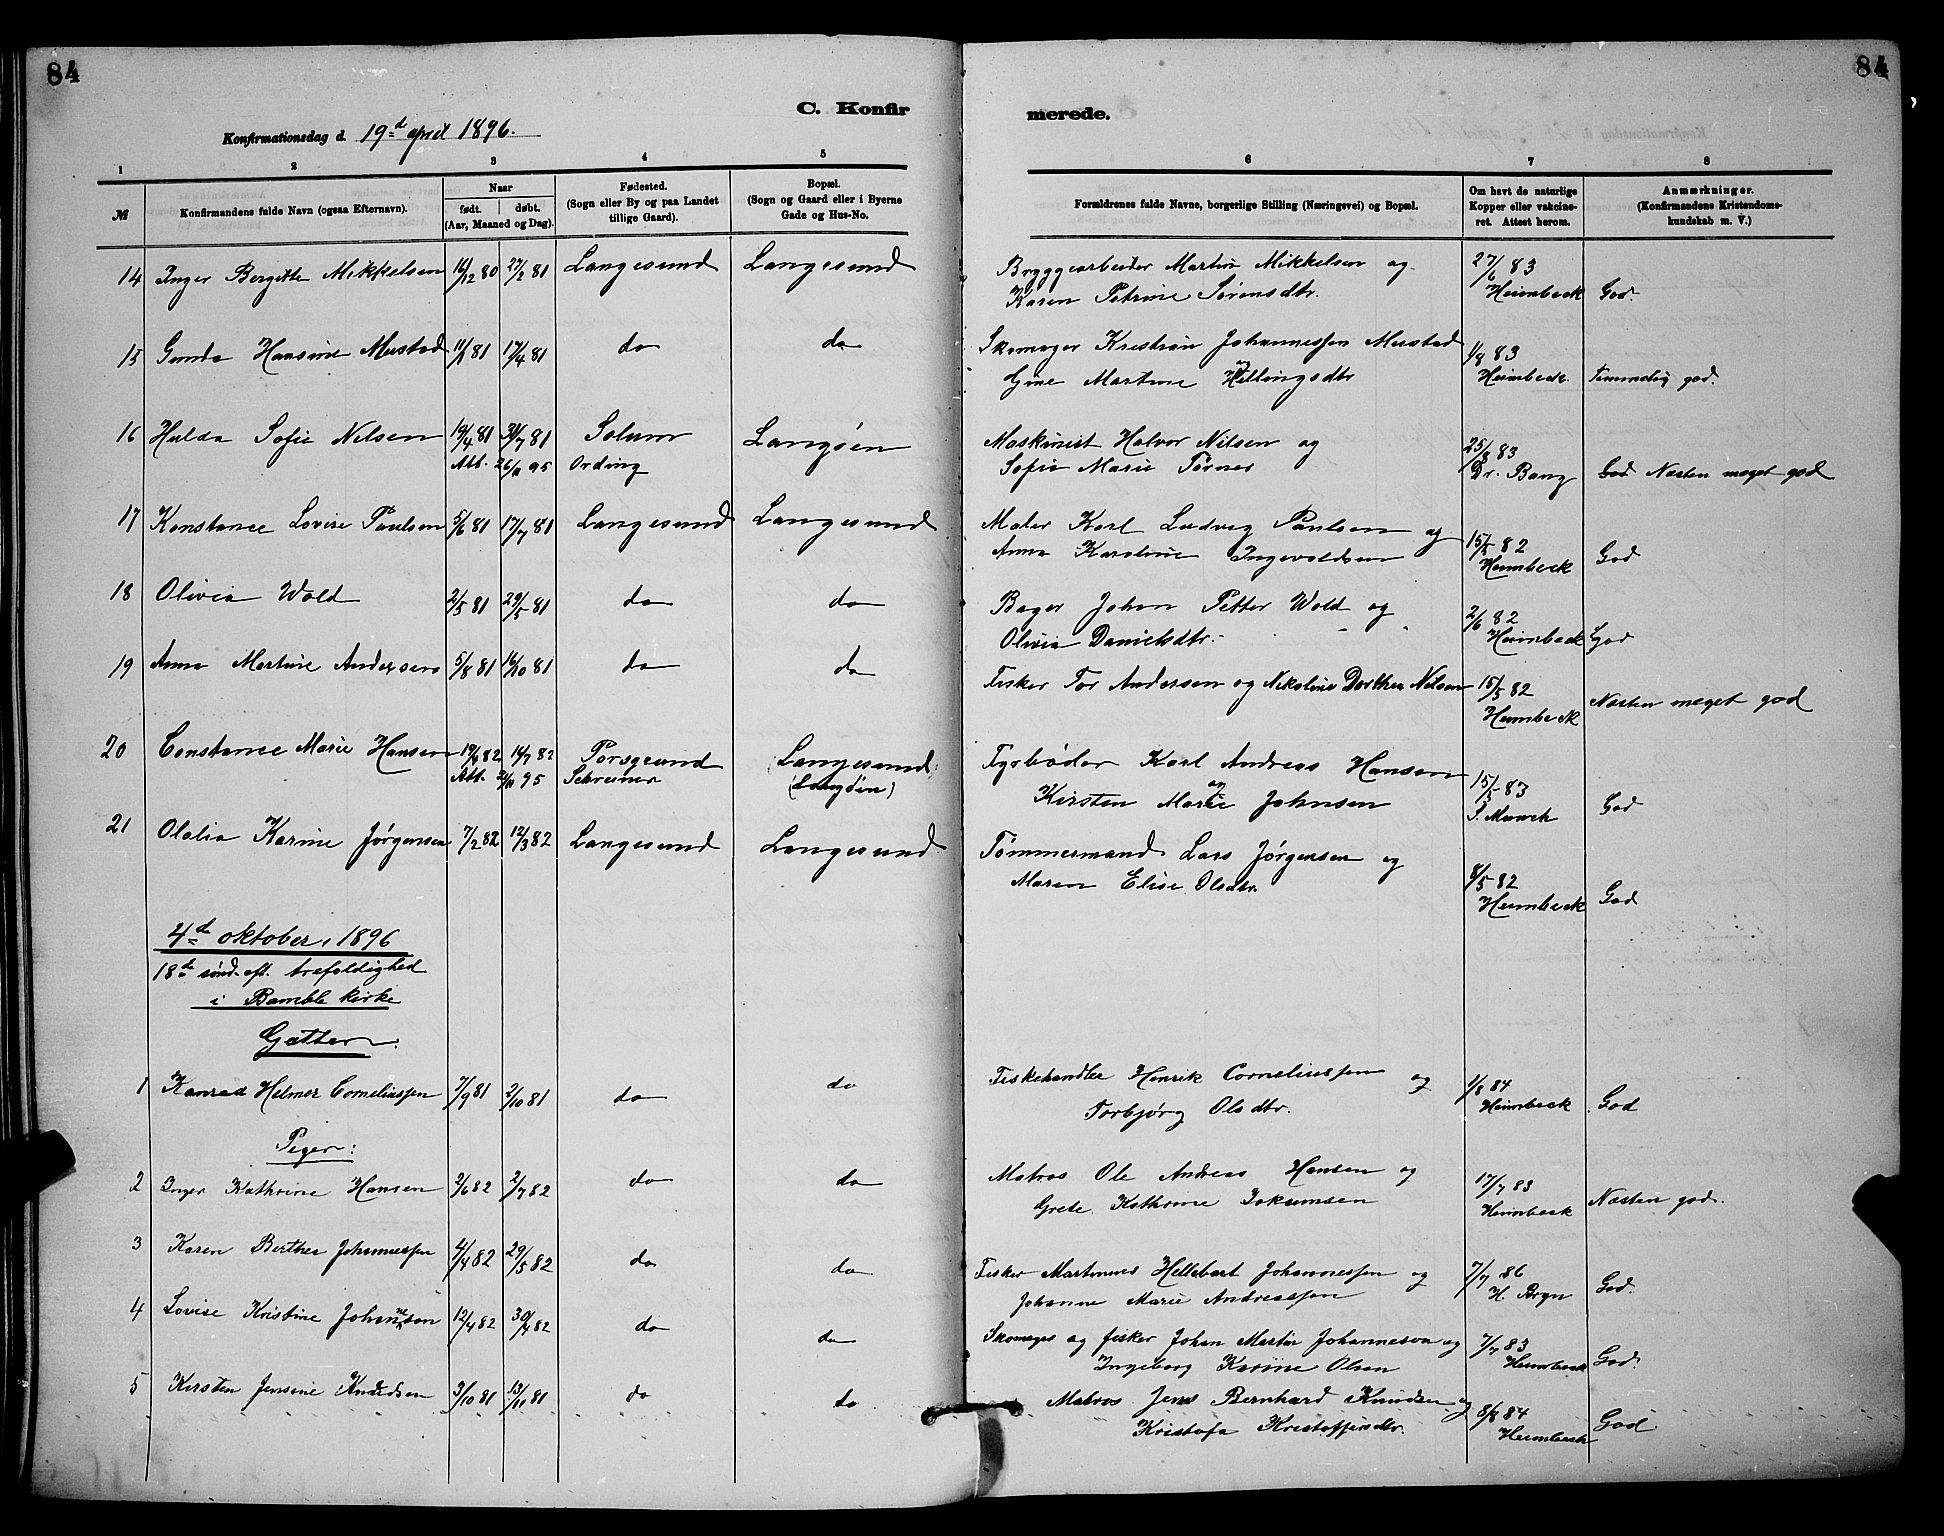 84
84
C. Konfir
merede.
Konfirmationsdag d. 19de april 1896.
1 2 3 4 5 6 7 8
№
Konfirmandens fulde Navn (ogsaa Efternavn).
Naar
født. døbt.
(Aar, Maaned og Dag).
Fødested.
(Sogn eller By og paa Landet
tillige Gaard).
Bopæl.
(Sogn og Gaard eller i Byerne
Gade og Hus-No.
Forældrenes fulde Navne, borgerlige Stilling (Næringsvei) og Bopæl.
Om havt de naturlige
Kopper eller vakcine-
ret. Attest herom.
Anmærkninger.
(Konfirmandens Kristendoms-
kundskab m. V.)
14 Inger Bergitte Mikkelsen 16/12 80 27/2 81 Langesund Langesund Bryggearbeider Martin Mikkelsen og 27/6 83
Karen Petrine Sørensdtr. Heimbeck God.
15 Gunda Hansine Mustad 11/1 81 17/4 81 do do Skomager Kristian Johannessen Mustad 1/8 83
Gine Martine Hellingsdtr Heimbeck. Temmelig god.
16 Hulda Sofie Nilsen 19/4 81 31/7 81 Solum Langøen Maskinist Halvor Nilsen og 25/8 83
Att. 26/9 95 Ording Sofie Marie Torner Dr. Bang God Næsten meget god
17 Konstance Lovise Paulsen 5/6 81 17/7 81 Langesund Langesund Maler Karl Ludvig Paulsen og
Anna Karoline Ingevaldsen 15/5 82 Heimbeck God
18 Olivia Wold 2/5 81 29/5 81 do do Bager Johan Petter Wold og 2/6 82
Olivia Danielsdtr. Heimbeck God
19 Anna Martine Andersen 5/8 81 16/10 81 do do Fisker Tor Andersen og Nikoline Dorthea Nilsen 15/5 82
Heimbeck Næsten meget god
20 Constance Marie Hansen 19/6 82 16/7 82 Porsgrund Langesund Fyrbøder Karl Andreas Hansen
Att. 2/10 95 Schreiner (Langøen) og Kirsten Marie Johnsen 15/5 83
S. Munch God
21 Olalia Karine Jørgensen 7/2 82 12/3 82 Langesund Langesund Tømmermand Lars Jørgensen og
Maren Elise Olsdtr. 8/5 82 Heimbeck God
4de oktober 1896
18de sønd. eft. trefoldighed
i Bamble kirke
Gutter:
1 Konrad Helmer Corneliussen 7/9 81 2/10 81 do do Fiskehandler Henrik Corneliussen og 1/8 84
Torbjørg Olsdtr. Heimbeck God
Piger:
2 Inger Kathrine Hansen 2/6 82 2/7 82 do do Matros Ole Andreas Hansen og 17/7 83
Grete Kathrine Jokumsen Heimbeck Næsten god.
3 Karen Berthea Johannessen 4/4 82 29/5 82 do do Fisker Martinus Hellebert Johannessen og 7/7 86
Johanne Marie Andreassen H. Bryn God.
4 Lovise Kristine Johannson 12/4 82 30/4 82 do do Skomager og fisker Johan Martin Johanneson og 7/7 83
Ingeborg Karine Olsen Heimbeck God.
5 Kirsten Jensine Knudsen 3/10 81 13/11 81 do do Matros Jens Bernhard Knudsen og 8/8 84
Kristofa Kristoffersdtr. Heimbeck God